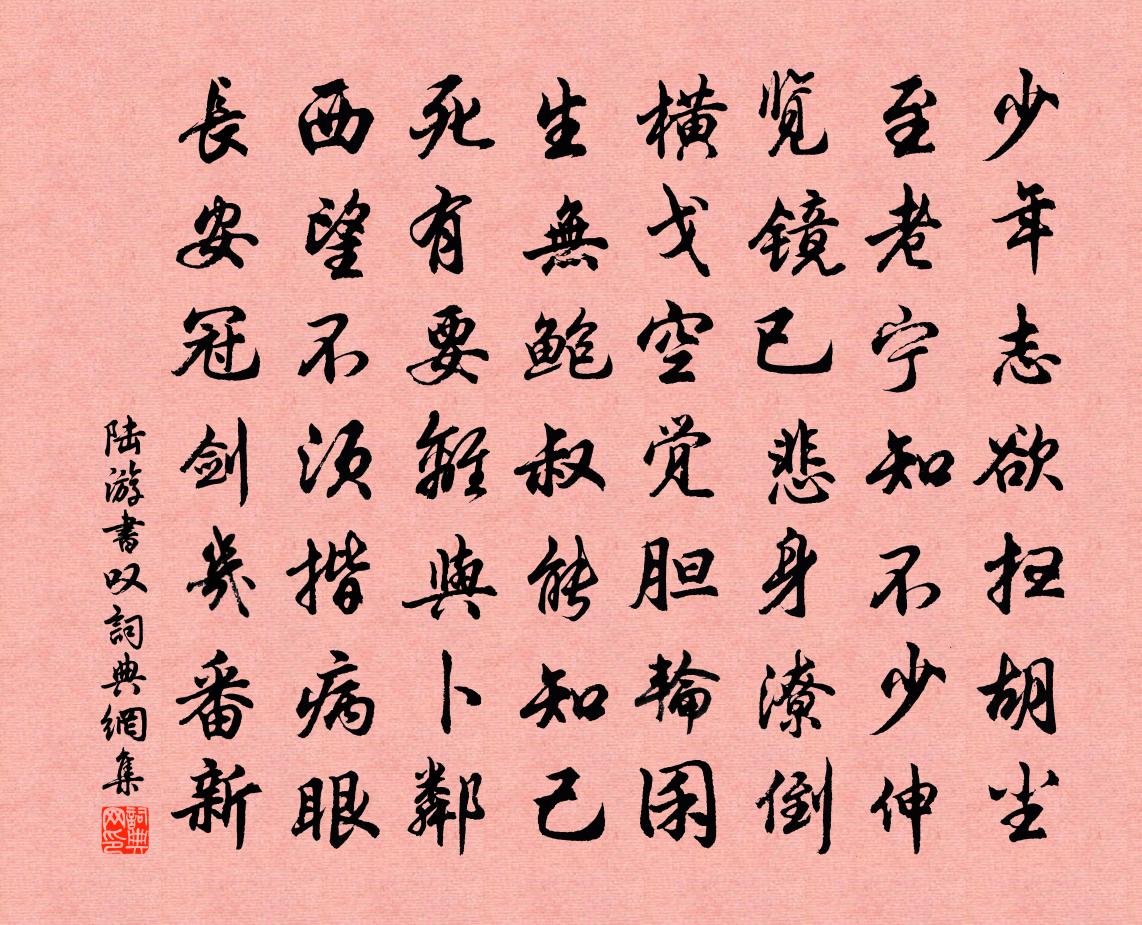 少年志欲扫胡尘
至老宁知不少伸
览镜已悲身潦倒
横戈空觉胆轮囷
生無鲍叔能知己
死有要離與卜鄰
西望不须揩病眼
長安冠剑幾番新
陆游書叹詞典網集
詞典网印